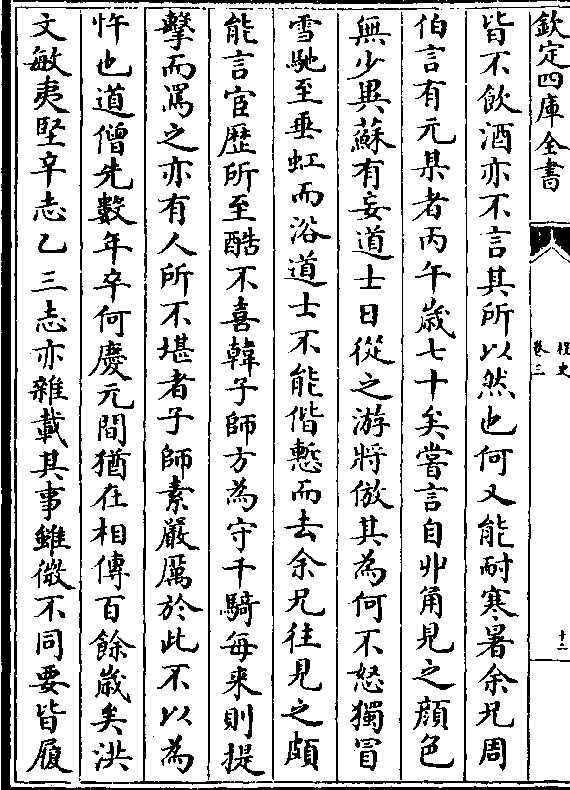 欽定四庫全書
桯史
卷三
十二
皆不飲酒亦不言其所以然也何又能耐寒暑余兄周
伯言有元杲者丙午歲七十矣嘗言自丱角見之顔色
無少異蘇有妄道士日從之游將倣其為何不怒獨冒
雪馳至垂虹而浴道士不能偕慙而去余兄往見之頗
能言宦歴所至酷不喜韓子師方為守千騎每来則提
擊而罵之亦有人所不堪者子師素嚴厲於此不以為
忤也道僧先數年卒何慶元間猶在相傳百餘歲矣洪
文敏夷堅辛志乙三志亦雜載其事雖微不同要皆履